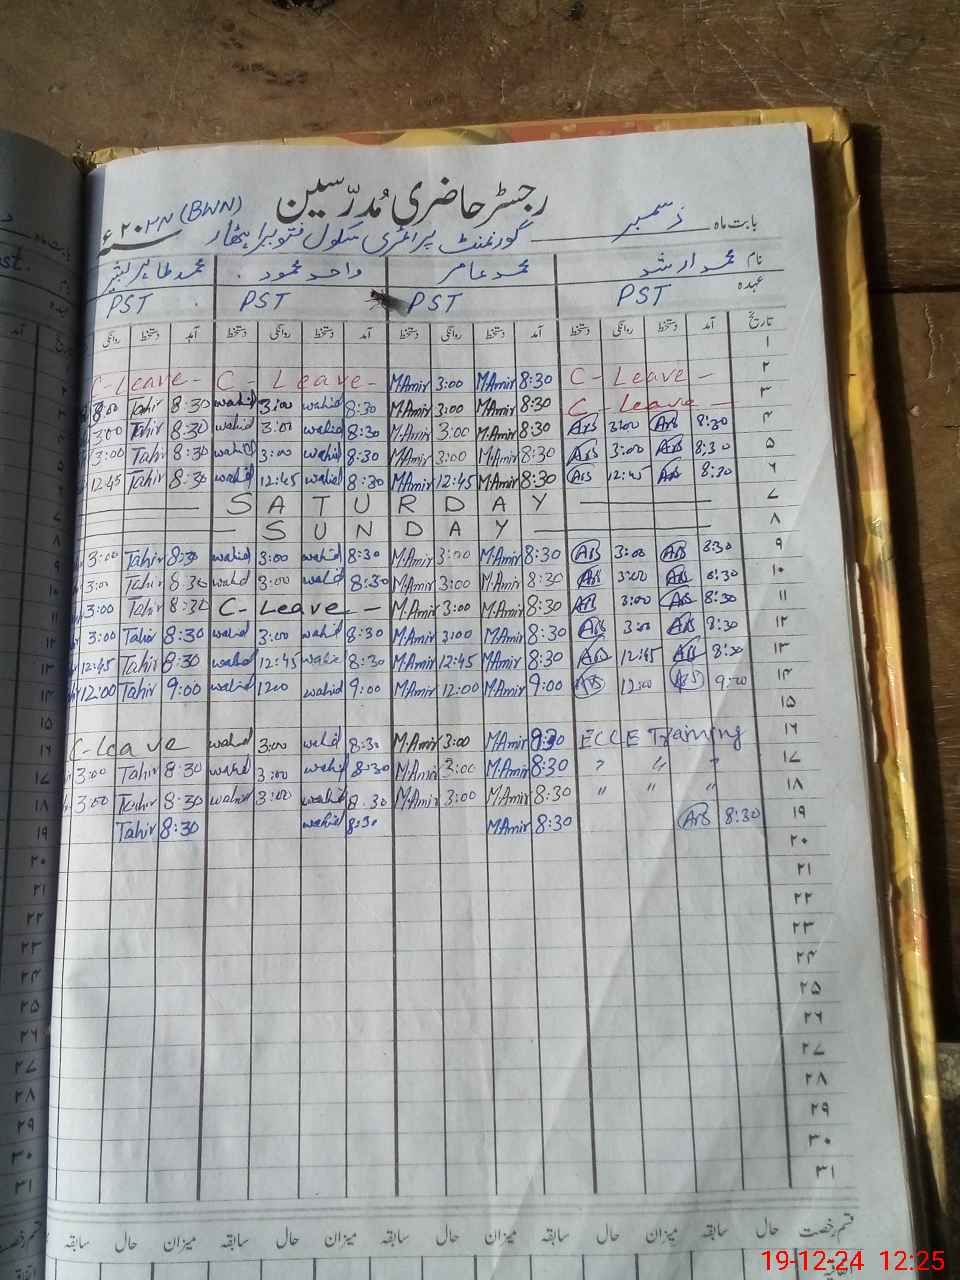 رجسٹر حاضری مُدرّسین
بابت ماہ دسمبر گورنمنٹ پرائمری سکول فتویرا ہٹھار سنہ ۲۰۲۴ء (BWN)
نام محمد ارشد محمد عامر واحد محمود محمد طاہر بشیر
عہدہ PST PST PST PST
تاریخ آمد دستخط روانگی دستخط آمد دستخط روانگی دستخط آمد دستخط روانگی دستخط آمد دستخط روانگی
۱
۲ C - Leave - 8:30 M.Amir 3:00 M.Amir C - Leave - C-Leave -
۳ C - Leave - 8:30 M.Amir 3:00 M.Amir 8:30 wahid 3:00 wahid 8:30 Tahir 3:00
۴ 8:30 Ars 3:00 Ars 8:30 M.Amir 3:00 M.Amir 8:30 wahid 3:00 wahid 8:30 Tahir 3:00
۵ 8:30 Ars 3:00 Ars 8:30 M.Amir 3:00 M.Amir 8:30 wahid 3:00 wahid 8:30 Tahir 3:00
۶ 8:30 Ars 12:45 Ars 8:30 M.Amir 12:45 M.Amir 8:30 wahid 12:45 wahid 8:30 Tahir 12:45
۷ SATURDAY
۸ SUNDAY
۹ 8:30 Ars 3:00 Ars 8:30 M.Amir 3:00 M.Amir 8:30 wahid 3:00 wahid 8:30 Tahir 3:00
۱۰ 8:30 Ars 3:00 Ars 8:30 M.Amir 3:00 M.Amir 8:30 wahid 3:00 wahid 8:30 Tahir 3:00
۱۱ 8:30 Ars 3:00 Ars 8:30 M.Amir 3:00 M.Amir C-Leave - 8:30 Tahir 3:00
۱۲ 8:30 Ars 3:00 Ars 8:30 M.Amir 3:00 M.Amir 8:30 wahid 3:00 wahid 8:30 Tahir 3:00
۱۳ 8:30 Ars 12:45 Ars 8:30 M.Amir 12:45 M.Amir 8:30 wahid 12:45 wahid 8:30 Tahir 12:45
۱۴ 9:00 Ars 12:00 Ars 9:00 M.Amir 12:00 M.Amir 9:00 wahid 1200 wahid 9:00 Tahir 12:00
۱۵
۱۶ ECCE Training 8:30 M.Amir 3:00 M.Amir 8:30 wahid 3:00 wahid C-Leave
۱۷ " " " 8:30 M.Amir 3:00 M.Amir 8:30 wahid 3:00 wahid 8:30 Tahir 3:00
۱۸ " " " 8:30 M.Amir 3:00 M.Amir 8:30 wahid 3:00 wahid 8:30 Tahir 3:00
۱۹ 8:30 Ars 8:30 M.Amir 8:30 wahid 8:30 Tahir
۲۰
۲۱
۲۲
۲۳
۲۴
۲۵
۲۶
۲۷
۲۸
۲۹
۳۰
۳۱
قسم رخصت حال سابقہ میزان حال سابقہ میزان حال سابقہ میزان حال سابقہ
اتفاقیہ
19-12-24 12:25